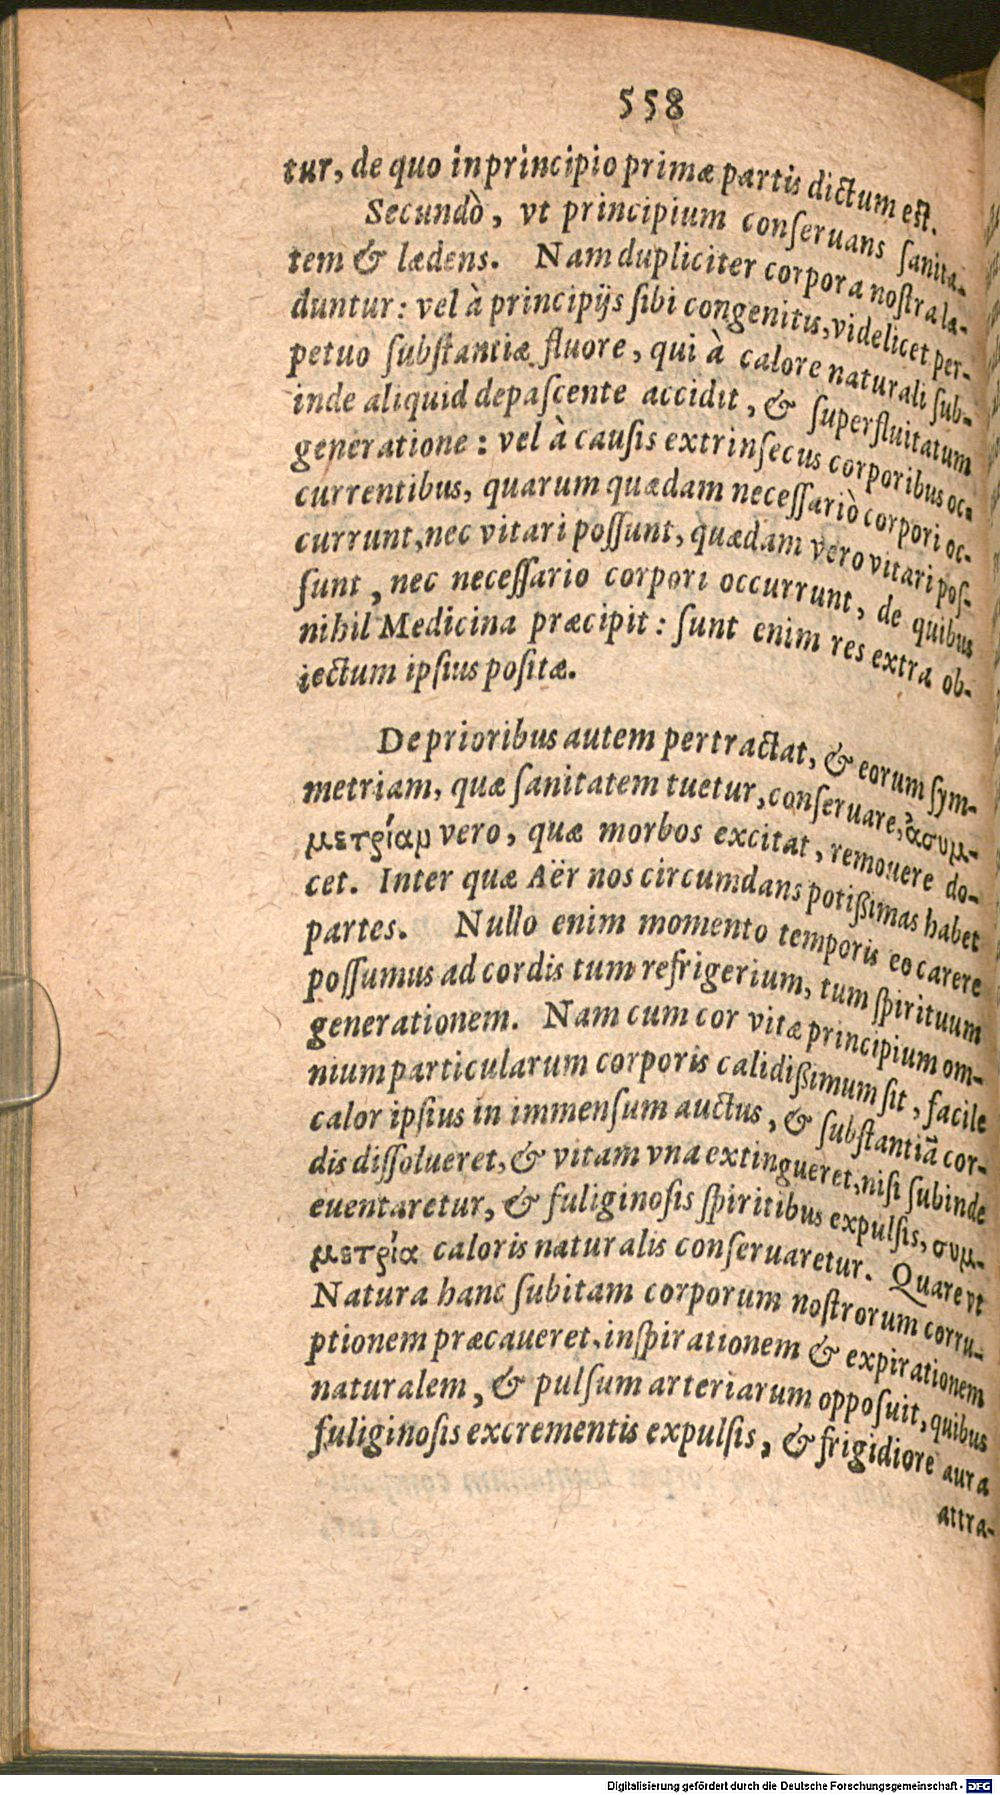 558
tur, de quo in principio primæ partis dictum est.
Secundò, vt principium conſeruans ſanita-
tem & lædens. Nam dupliciter corpora noſtra læ-
duntur: vel à principijs ſibi congenitis, videlicet per-
petuo ſubſtantiæ fluore, qui à calore naturali ſub-
inde aliquid depaſcente accidit, & ſuperfluitatum
generatione: vel à cauſis extrinſecus corporibus oc-
currentibus, quarum quædam neceſſariò corpori oc-
currunt, nec vitari poſſunt, quædam vero vitari poſ-
ſunt, nec neceſſario corpori occurrunt, de quibus
nihil Medicina præcipit: ſunt enim res extra ob-
iectum ipſius poſitæ.
De prioribus autem pertractat, & eorum ſym-
metriam, quæ ſanitatem tuetur, conſeruare, ἀσυμ-
μετρίαν vero, quæ morbos excitat, remouere do-
cet. Inter quæ Aër nos circumdans potißimas habet
partes. Nullo enim momento temporis eo carere
poſſumus ad cordis tum refrigerium, tum ſpirituum
generationem. Nam cum cor vitæ principium om-
nium particularum corporis calidißimum ſit, facile
calor ipſius in immenſum auctus, & ſubſtantiā cor-
dis diſſolueret, & vitam vna extingueret, niſi ſubinde
euentaretur, & fuliginoſis ſpiritibus expulſis, συμ-
μετρία caloris naturalis conſeruaretur. Quare vt
Natura hanc ſubitam corporum noſtrorum corru-
ptionem præcaueret, inſpirationem & expirationem
naturalem, & pulſum arteriarum oppoſuit, quibus
fuliginoſis excrementis expulſis, & frigidiore aura
attra-
Digitalisierung gefördert durch die Deutsche Forschungsgemeinschaft - DFG